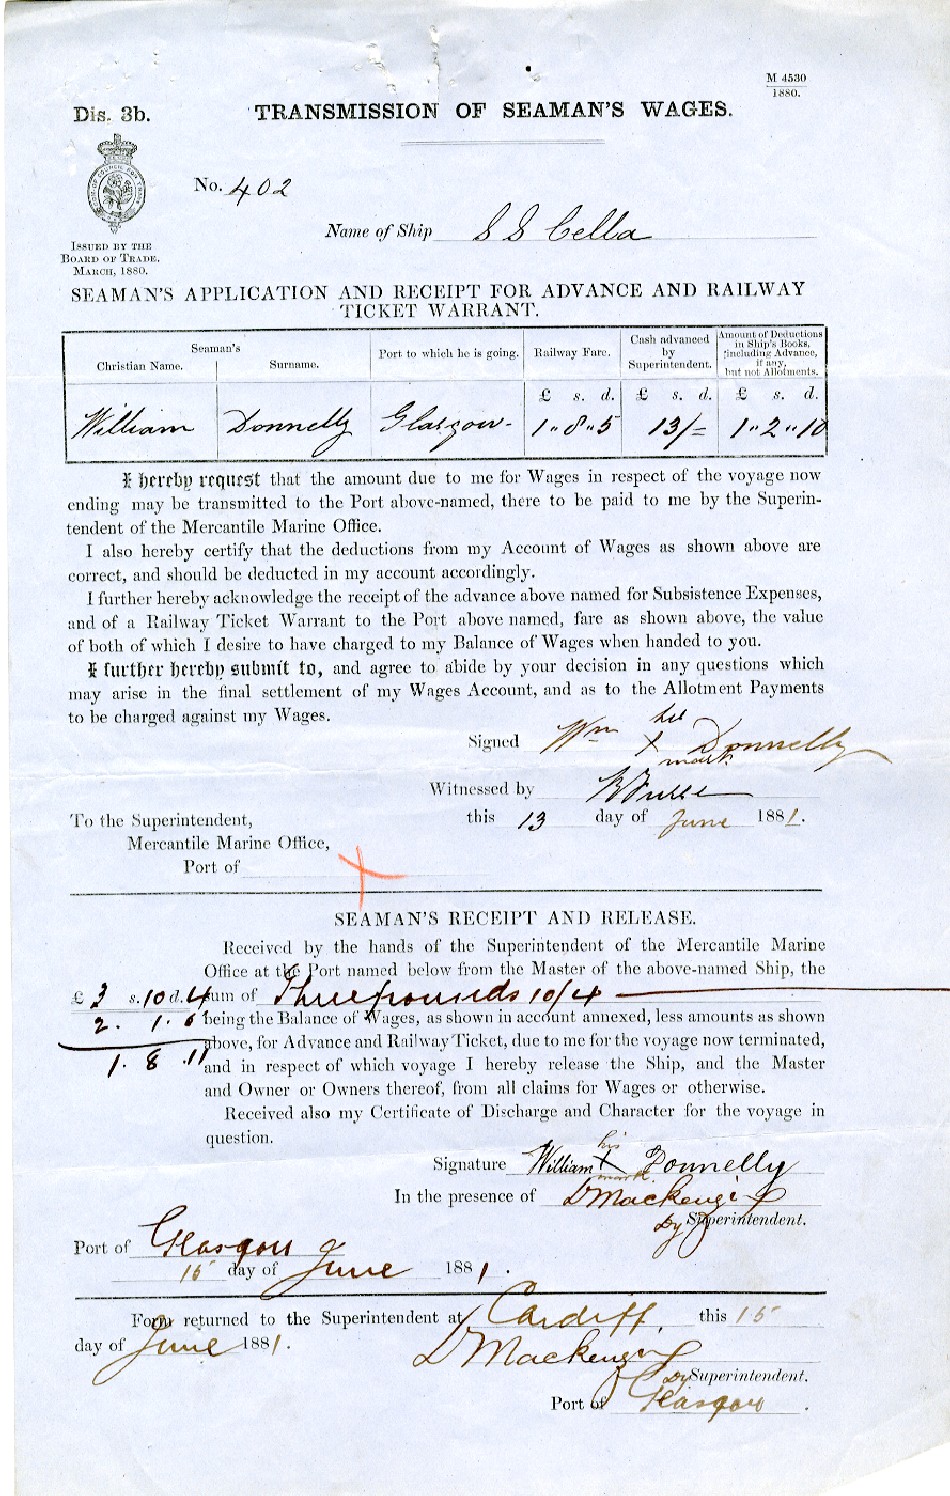 M 4530
1880.
Dis. 3b.
TRANSMISSION OF SEAMAN'S WAGES.
No. 402
Name of Ship S S Cella
ISSUED BY THE
BOARD OF TRADE.
MARCH, 1880.
SEAMAN'S APPLICATION AND RECEIPT FOR ADVANCE AND RAILWAY
TICKET WARRANT.
Seaman's
Christian Name. Surname. Port to which he is going. Railway Fare. Cash advanced by Superintendent. Amount of Deductions in Ship's Books, (including Advance, if any, but not Allotments.
£ s. d. £ s. d. £ s. d.
William Donnelly Glasgow- 1"8"5 13/= 1"2"10
I hereby request that the amount due to me for Wages in respect of the voyage now
ending may be transmitted to the Port above-named, there to be paid to me by the Superin-
tendent of the Mercantile Marine Office.
I also hereby certify that the deductions from my Account of Wages as shown above are
correct, and should be deducted in my account accordingly.
I further hereby acknowledge the receipt of the advance above named for Subsistence Expenses,
and of a Railway Ticket Warrant to the Port above named, fare as shown above, the value
of both of which I desire to have charged to my Balance of Wages when handed to you.
I further hereby submit to, and agree to abide by your decision in any questions which
may arise in the final settlement of my Wages Account, and as to the Allotment Payments
to be charged against my Wages.
Signed Wm his X mark Donnelly
Witnessed by
this 13 day of June 1881.
To the Superintendent,
Mercantile Marine Office,
Port of
SEAMAN'S RECEIPT AND RELEASE.
Received by the hands of the Superintendent of the Mercantile Marine
Office at the Port named below from the Master of the above-named Ship, the
£ 3 s. 10 d. 4 sum of Three pounds 10/4
2. 1. 5 being the Balance of Wages, as shown in account annexed, less amounts as shown
above, for Advance and Railway Ticket, due to me for the voyage now terminated,
1. 8 .11 and in respect of which voyage I hereby release the Ship, and the Master
and Owner or Owners thereof, from all claims for Wages or otherwise.
Received also my Certificate of Discharge and Character for the voyage in
question.
Signature William his X mark Donnelly
In the presence of D Mackenzie
Dy Superintendent.
Port of Glasgow
15 day of June 1881.
Form returned to the Superintendent at Cardiff, this 15
day of June 1881.
D Mackenzie
Dy Superintendent.
Port of Glasgow.